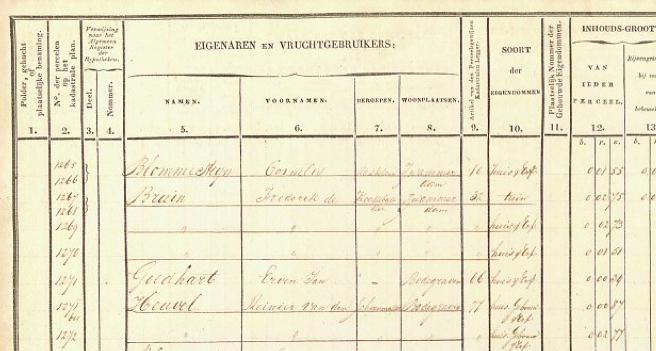 Polder, gehucht plaatselijke benaming.
N.º der perceelen op het kadastrale plan.
Verwijzing naar het Algemeen Register der Hypotheken.
Deel.
Nommer.
EIGENAREN EN VRUCHTGEBRUIKERS:
NAMEN.
VOORNAMEN.
BEROEPEN.
WOONPLAATSEN.
Artikel van den Perceelsgewijzen Kadastralen Legger.
SOORT
der
EIGENDOMMEN
Plaatselijk Nommer der Gebouwde Eigendommen.
INHOUDS-GROOT
VAN
IEDER
PERCEEL.
1. 2. 3. 4. 5. 6. 7. 8. 9. 10. 11. 12. 13
b. r. e. b.
1265
1266 Cornelis 10 huis & Erf 0 01 55
1267 Bruin Frederik de 32 tuin 0 02 75
1268
1269 " " " " " huis & Erf 0 02 73
1270 " " " " " huis & Erf 0 01 51
1271 Goedhart Erven Jan – Bodegraven 66 huis & Erf 0 00 54
1271 Heuvel Reinier van den Bodegraven 77 0 00 87
1272 " " " " " 0 02 77